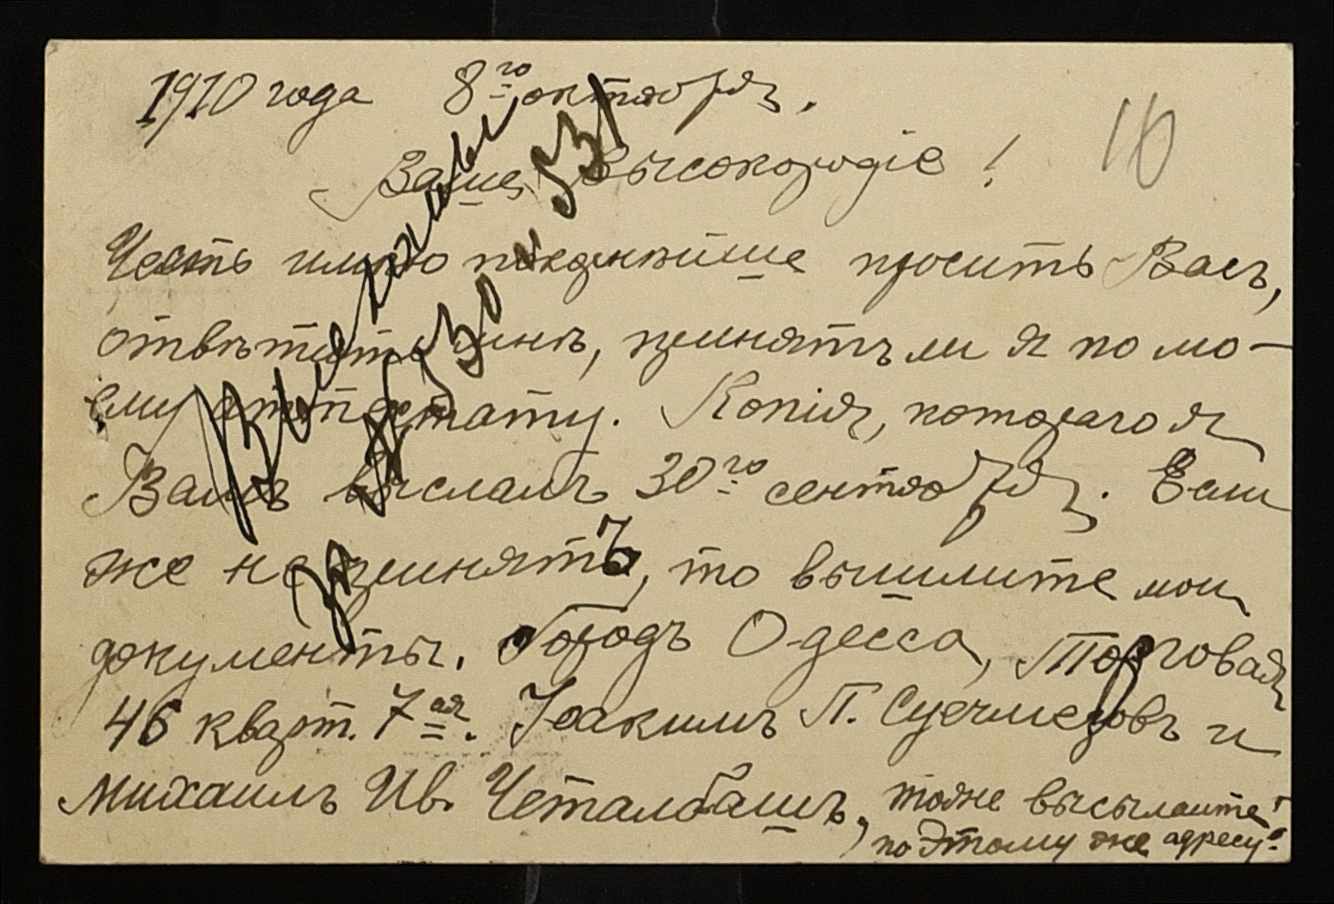 1910 года 8го октября.
16
Ваше Высокородіе!
Честь имѣю покорнѣйше просить Васъ,
отвѣтить мнѣ, принятъ ли я по мо-
ему аттестату. Копія, котораго я
Вамъ выслалъ 30го сентября. Если
же не принятъ, то вышлите мои
документы. Городъ Одесса, Торговая
46 кварт. 7ая. Іоакимъ П. и
Михаилъ Ив. Четалбашъ, тоже высылайте
по этому же адресу.
Высланы
за № 530 и 531